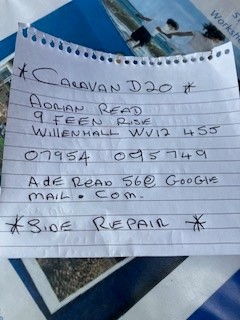 * CARAVAN D20 *
ADRIAN READ
9 FEEN RISE
WILLENHALL WV12 4SS
07954 095749
ADE READ 56@ GOOGLE
MAIL . COM.
* SIDE REPAIR *